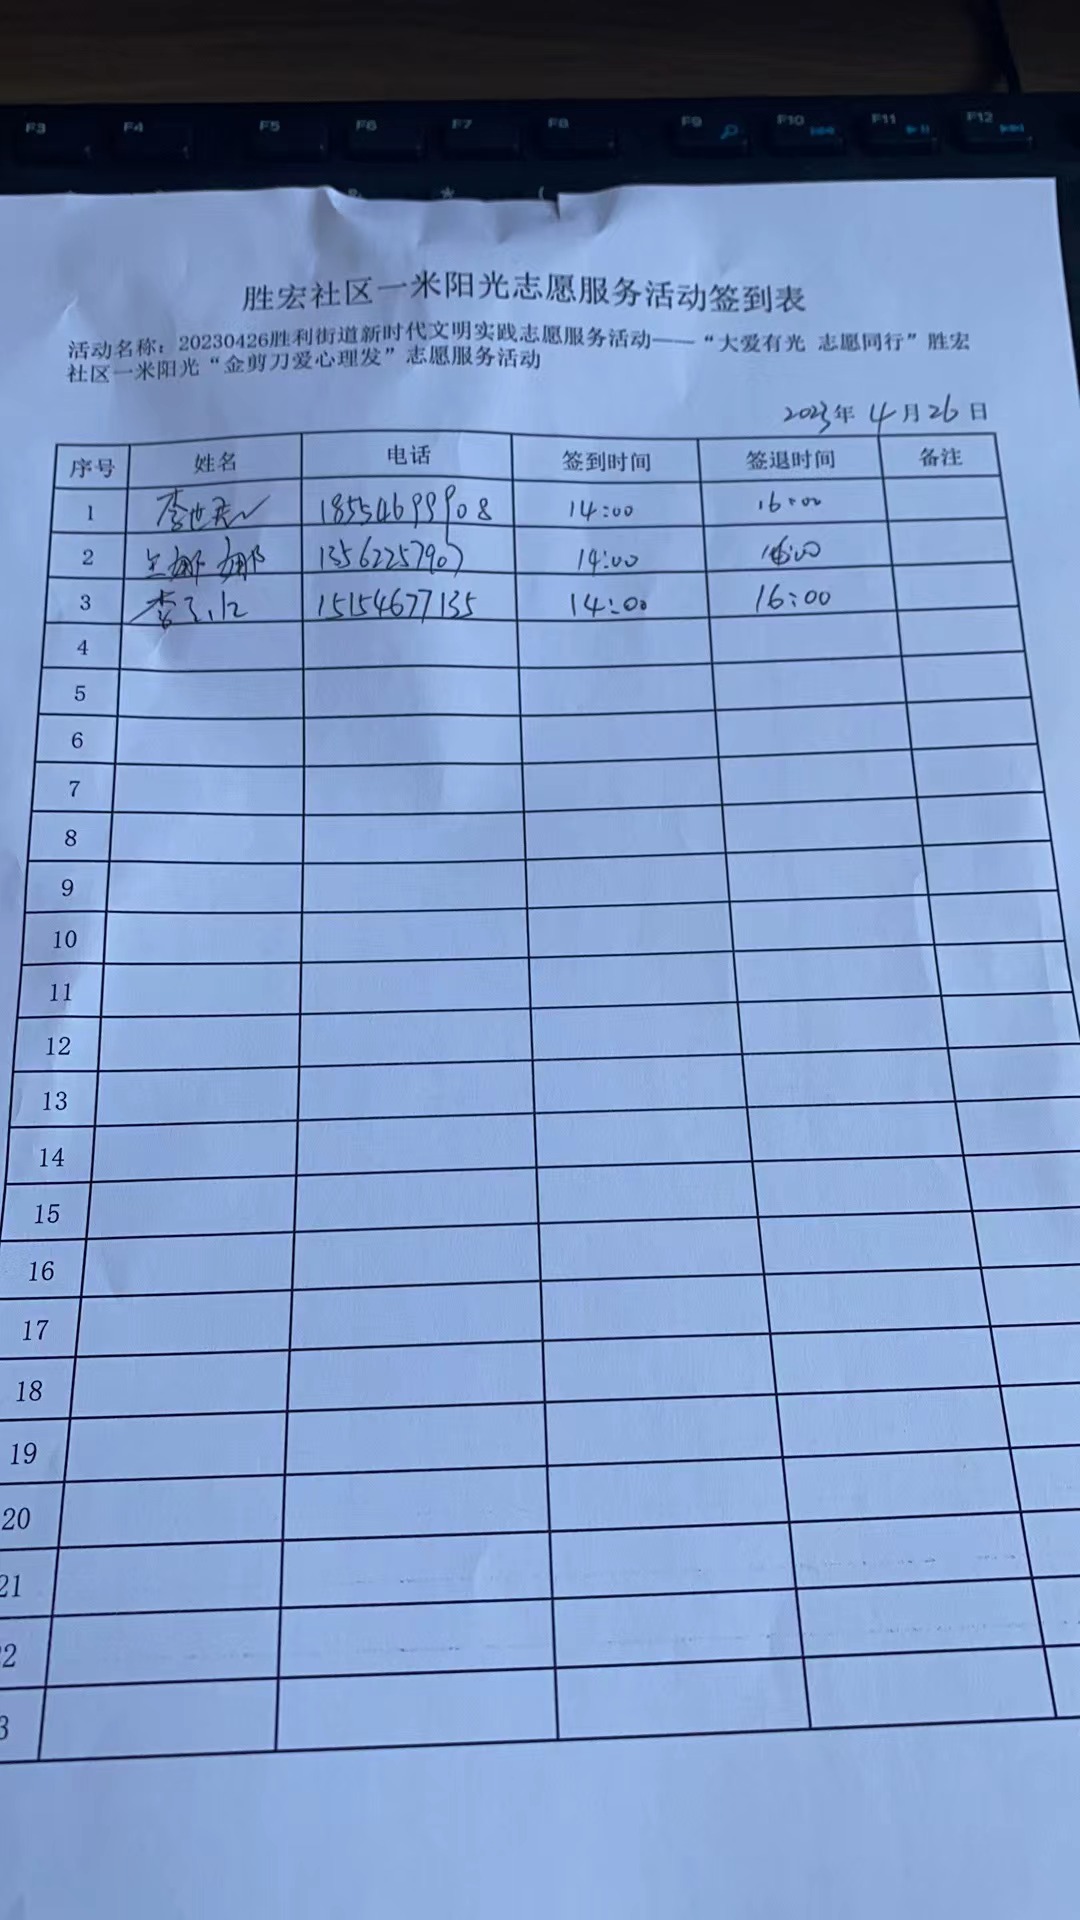 F3 F4 F5 F6 F7 F8 F9 F10 F11 F12
胜宏社区一米阳光志愿服务活动签到表
活动名称：20230426胜利街道新时代文明实践志愿服务活动——“大爱有光 志愿同行”胜宏
社区一米阳光“金剪刀爱心理发”志愿服务活动
2023年 4月26日
序号 姓名 电话 签到时间 签退时间 备注
1 李世 18554699908 14:00 16:00
2 娜娜 13562257907 14:00 16:00
3 李 15154677135 14:00 16:00
4
5
6
7
8
9
10
11
12
13
14
15
16
17
18
19
20
21
2
3